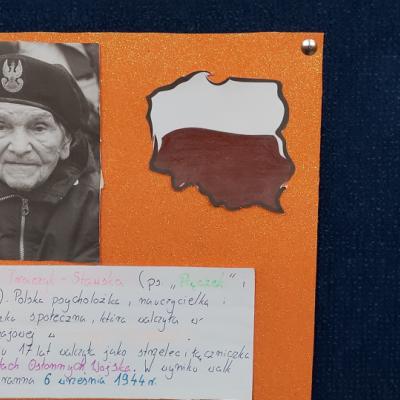 Traczyk - Stawska (ps. „Pączek" i
). Polska psycholożka, nauczycielka i
społeczna, która walczyła w
17 lat walczyła jako strzelec i łączniczka
Osłonowych Wojska. W wyniku walk
ranna 6 września 1944r.